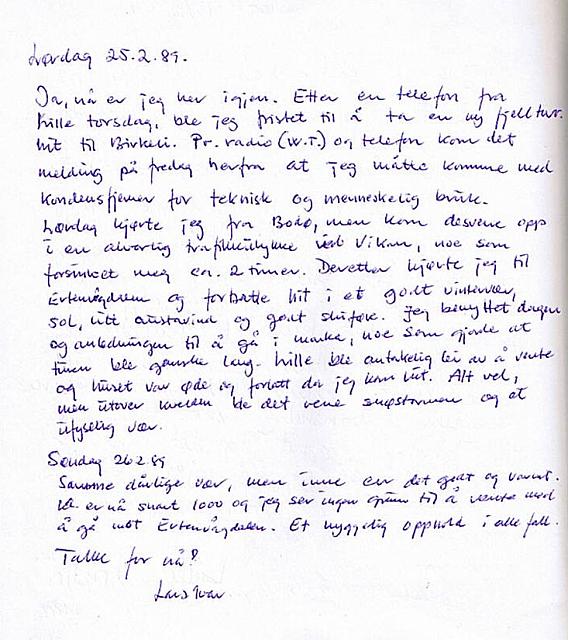 Lørdag 25.2.89.
Ja, nå er jeg her igjen. Etter en telefon fra
hille torsdag, ble jeg fristet til å ta en ny fjelltur.
hit til Birkeli. Pr. radio (W.T.) og telefon kom det
melding på fredag herfra at jeg måtte komme med
kondensfjerner for teknisk og menneskelig bruk.
Lørdag kjørte jeg fra Bodø, men kom desverre opp
i en alvorlig trafikkulykke ved Vikan, noe som
forsinket meg ca. 2 timer. Deretter kjørte jeg til
Evtenvågdalen og fortsatte hit i et godt vintervær,
sol, litt austavind og godt skiføre. Jeg benyttet dagen
og anledningen til å gå i marka, noe som gjorde at
turen ble ganske lang. hille ble antakelig lei av å vente
og huset var øde og forlatt da jeg kom hit. Alt vel,
men utover kvelden ble det rene snøstormen og et
ufyselig vær.
Søndag 26.2.89
Samme dårlige vær, men inne er det godt og varmt.
Kl. er nå snart 1000 og jeg ser ingen grunn til å vente med
å gå mot Evtenvågdalen. Et hyggelig opphold i alle fall.
Takk for nå!
Lars Ivar